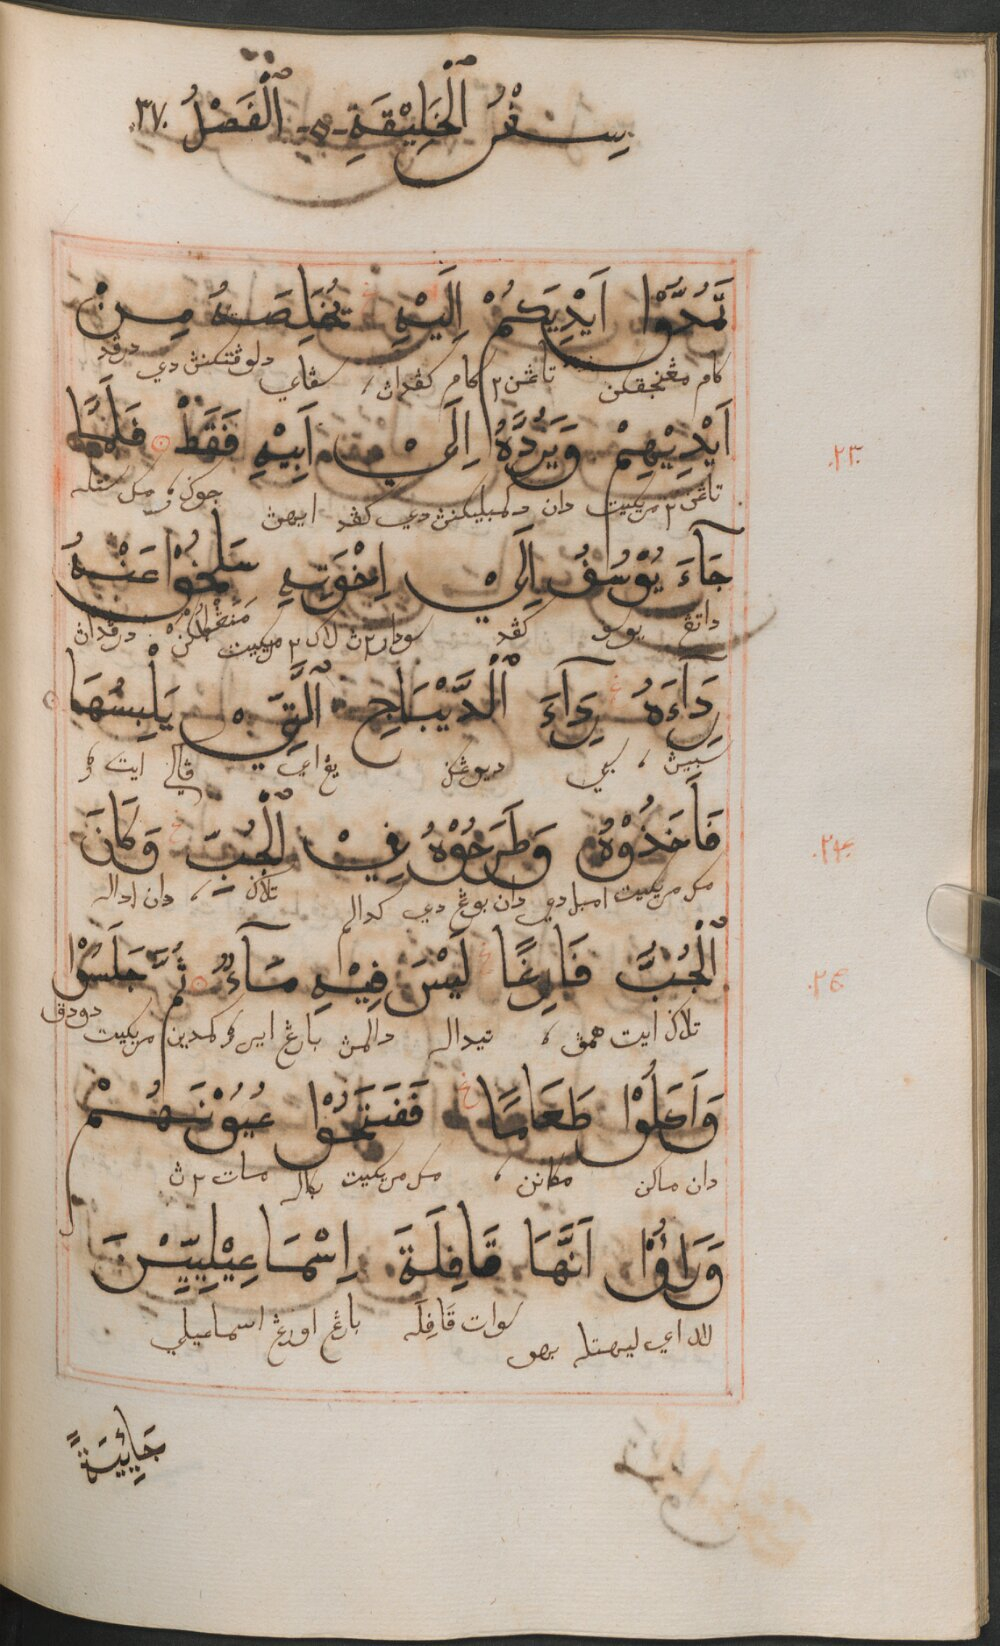 سِفْرُ ٱلْخَلِيْقَةِ ـ ه ـ ٱلْفَصْلُ ٣٧
تَمُدُّوْا اَيْدِيَكُمْ اِلَيْهِ يُخَلِّصَهُ مِنْ
كام مڠنجقكن تاڠن٢ كام كڤدان، سڤاي دلوڤتكنڽ دي درڤد
اَيْدِيْهِمْ وَيَرُدَّهُ اِلَىْ اَبِيْهِ فَقَطْ فَلَمَّا
٢٣
تاڠن٢ مريكيت دان دكمبليكنڽ دي كڤد ايهڽ جوڬ؛ مك ستله
جَآءَ يُوْسُفُ اِلَيْ اِخْوَتِهِ سَلَخُوْا عَنْهُ
داتڠ يوسو كڤد سودار٢ڽ لاك٢ مريكيت درڤدان
رِدَآءَهُ رِدَآءَ ٱلدَّيْبَاجِ ٱلَّتِيْ يَلْبِسُهَا
يڠ اي ڤاكي ايت
فَأَخَذُوْهُ وَطَرَحُوْهُ فِيْ ٱلْجُبِّ وَكَانَ
٢٤
مك مريكيت امبل دي دان بوڠ دي كدالم تلاڬ، دان اداله
ٱلْجُبُّ فَارِغًا لَيْسَ فِيْهِ مَآءٌ ثُمَّ جَلَسُوْا
٢٥
تلاڬ ايت همڤ، تيداله دالمڽ بارڠ اير كمدين مريكيت دودق
وَاَكَلُوْا طَعَامًا فَفَتَحُوْا عُيُوْنَهُمْ
دان ماكن مكانن، مك مريكيت بوكاله مات٢ڽ
وَرَاَوْا اَنَّهَا قَافِلَةَ اِسْمَاعِيْلِيِّيْنَ
اي ليهتله بهو سوات قَافِلَه بارڠ اورڠ اسماعيلي
جَائِيَةً